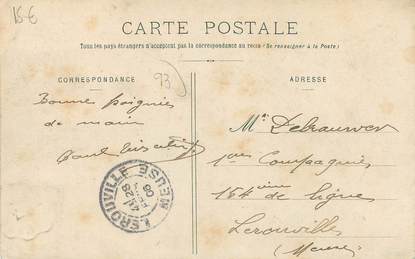 15 €
CARTE POSTALE
Tous les pays étrangers n'acceptent pas la correspondance au recto (Se renseigner à la Poste)
CORRESPONDANCE
93
ADRESSE
Bonne poignée
de main
Paul
Mr Debrauwer
1ère Compagnie
164 ième de ligne
Lerouville
(Meuse)
LEROUVILLE
28
08
MEUSE